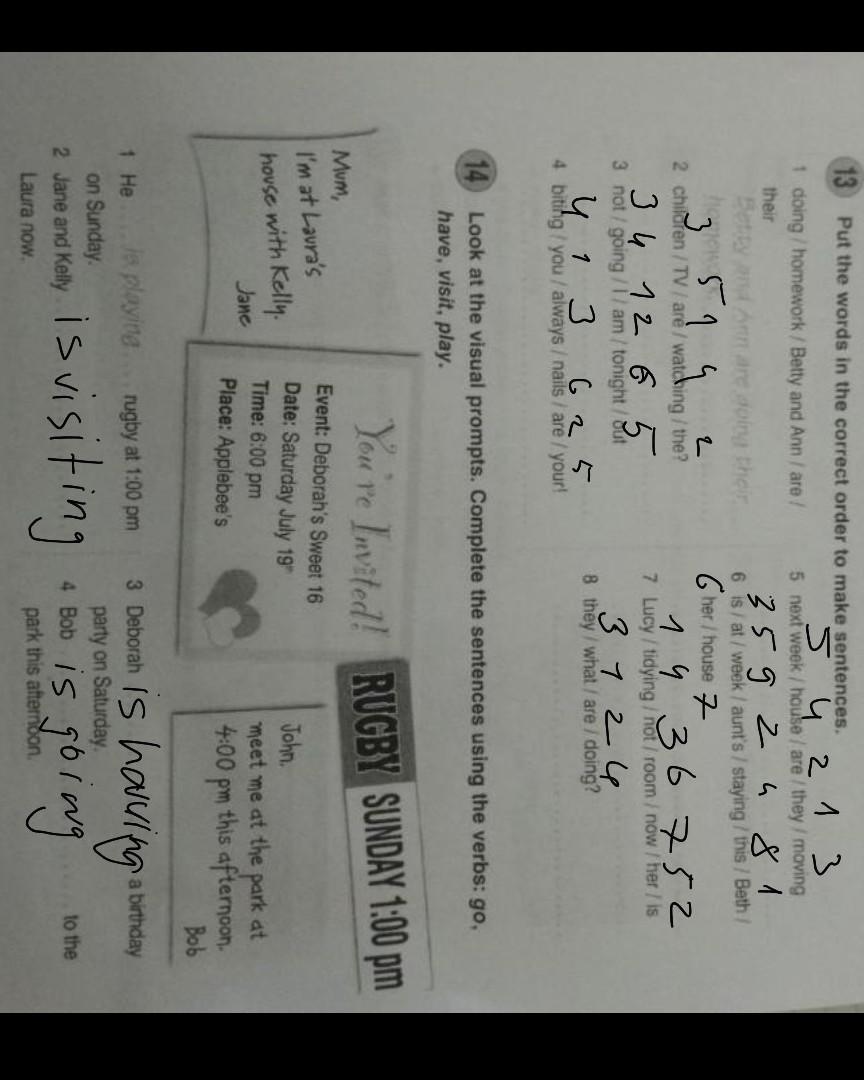 13 Put the words in the correct order to make sentences.
1 doing / homework / Betty and Ann / are /
their
Betty and Ann are doing their
homework.
3 5 1 4 2
2 children / TV / are / watching / the?
3 4 1 2 6 5
3 not / going / I / am / tonight / out
4 1 3 6 2 5
4 biting / you / always / nails / are / your!
5 4 2 1 3
5 next week / house / are / they / moving
3 5 9 2 4 8 1
6 is / at / week / aunt's / staying / this / Beth /
6 7
her / house
1 4 3 6 7 5 2
7 Lucy / tidying / not / room / now / her / is
3 1 2 4
8 they / what / are / doing?
14 Look at the visual prompts. Complete the sentences using the verbs: go,
have, visit, play.
Mum,
I'm at Laura's
house with Kelly.
Jane
You're Invited!
Event: Deborah's Sweet 16
Date: Saturday July 19th
Time: 6:00 pm
Place: Applebee's
RUGBY SUNDAY 1:00 pm
John,
meet me at the park at
4:00 pm this afternoon.
Bob
1 He is playing rugby at 1:00 pm
on Sunday.
2 Jane and Kelly is visiting
Laura now.
3 Deborah is having a birthday
party on Saturday.
4 Bob is going to the
park this afternoon.